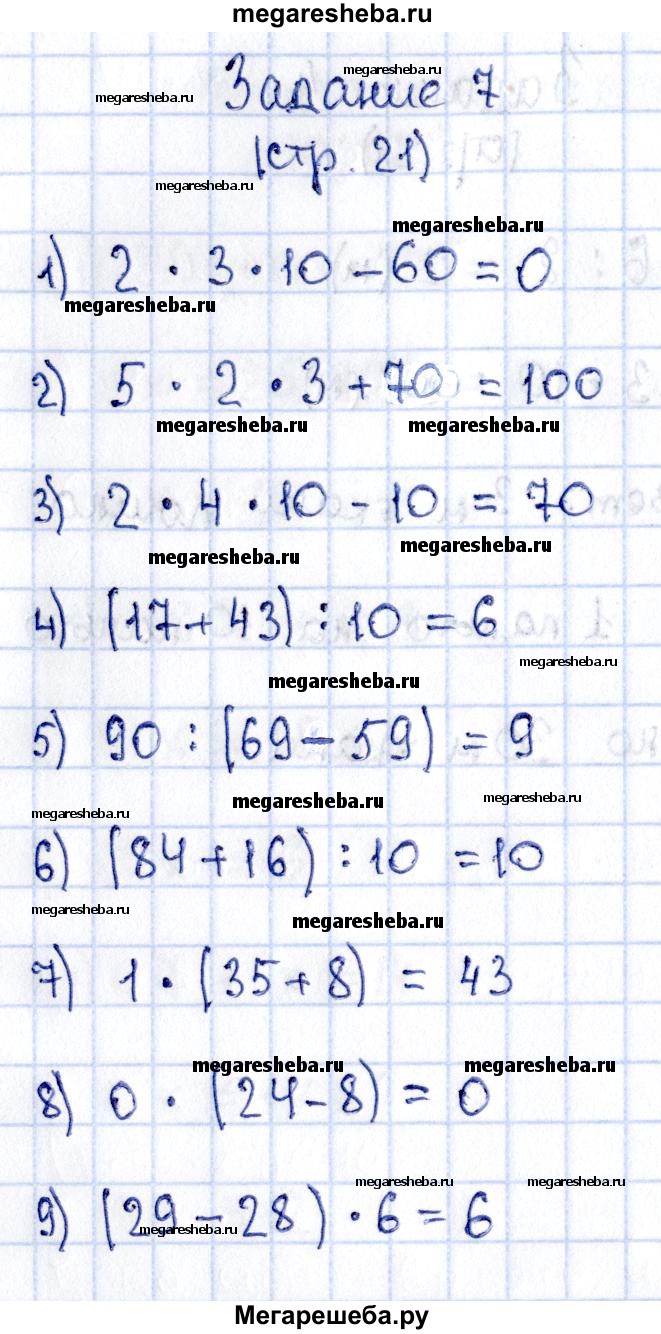 megaresheba.ru
megaresheba.ru
megaresheba.ru
Задание 7
(стр. 21)
megaresheba.ru
megaresheba.ru
1) 2 · 3 · 10 - 60 = 0
megaresheba.ru
2) 5 · 2 · 3 + 70 = 100
megaresheba.ru megaresheba.ru
3) 2 · 4 · 10 - 10 = 70
megaresheba.ru megaresheba.ru
4) (17 + 43) : 10 = 6
megaresheba.ru
megaresheba.ru
5) 90 : (69 - 59) = 9
megaresheba.ru megaresheba.ru
megaresheba.ru
6) (84 + 16) : 10 = 10
megaresheba.ru
megaresheba.ru
7) 1 · (35 + 8) = 43
megaresheba.ru megaresheba.ru
8) 0 · (24 - 8) = 0
megaresheba.ru megaresheba.ru
9) (29 - 28) · 6 = 6
megaresheba.ru
Мегарешеба.ру